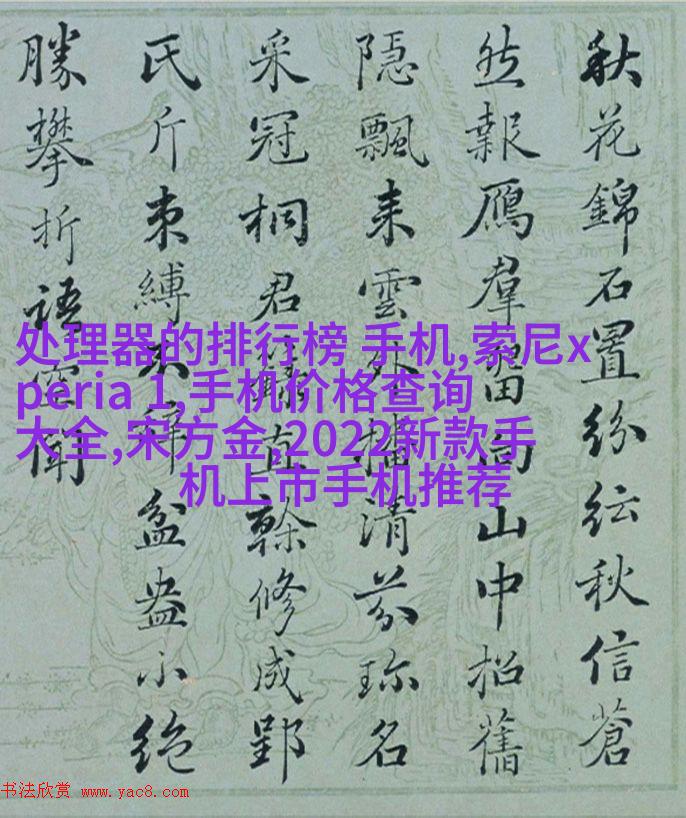 秋花錦石置紛紜秋信蒼
然報鴈羣留向山中招舊
隱飄来雲外播清芬珎名
采冠桐君錄直幹修成郢
氏斤束縛来歸盆盎小絶
勝攀折語空聞
处理器的排行榜 手机,索尼x
peria 1,手机价格查询
大全,宋方金,2022新款手
机上市手机推荐
书法欣赏 www.yac8.com